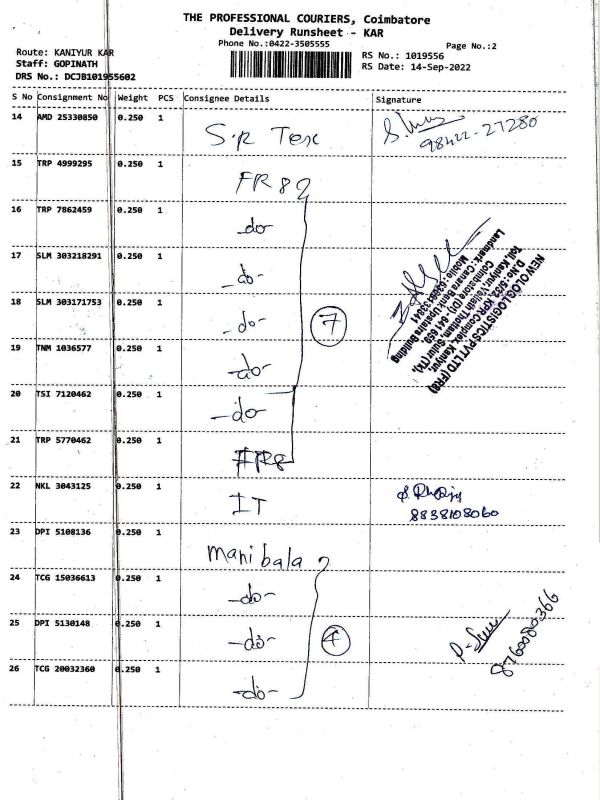 THE PROFESSIONAL COURIERS, Coimbatore
Delivery Runsheet - KAR
Phone No.:0422-3505555
Page No.:2
Route: KANIYUR KAR
Staff: GOPINATH
DRS No.: DCJB101955602
RS No.: 1019556
RS Date: 14-Sep-2022
S No Consignment No Weight PCS Consignee Details Signature
14 AMD 25330850 0.250 1 S.R Tex
98422-27280
15 TRP 4999295 0.250 1 FR8
16 TRP 7862459 0.250 1 -do-
17 SLM 303218291 0.250 1 -do-
18 SLM 303171753 0.250 1 -do-
7
19 TNM 1036577 0.250 1 -do-
20 TSI 7120462 0.250 1 -do-
21 TRP 5770462 0.250 1 FR8
NEW OLOG LOGISTICS PVT LTD (FR8)
D.No: 5/32, KPR Complex, Kaniyur,
Toll, Kaniyur, Thottam, Sulur (TK),
Coimbatore (Dt) - 641 659.
Landmark: Canara Bank Upstairs Building
22 NKL 3043125 0.250 1 IT
8838108060
23 DPI 5108136 0.250 1 Manibala
24 TCG 15036613 0.250 1 -do-
25 DPI 5130148 0.250 1 -do-
4
26 TCG 20032360 0.250 1 -do-